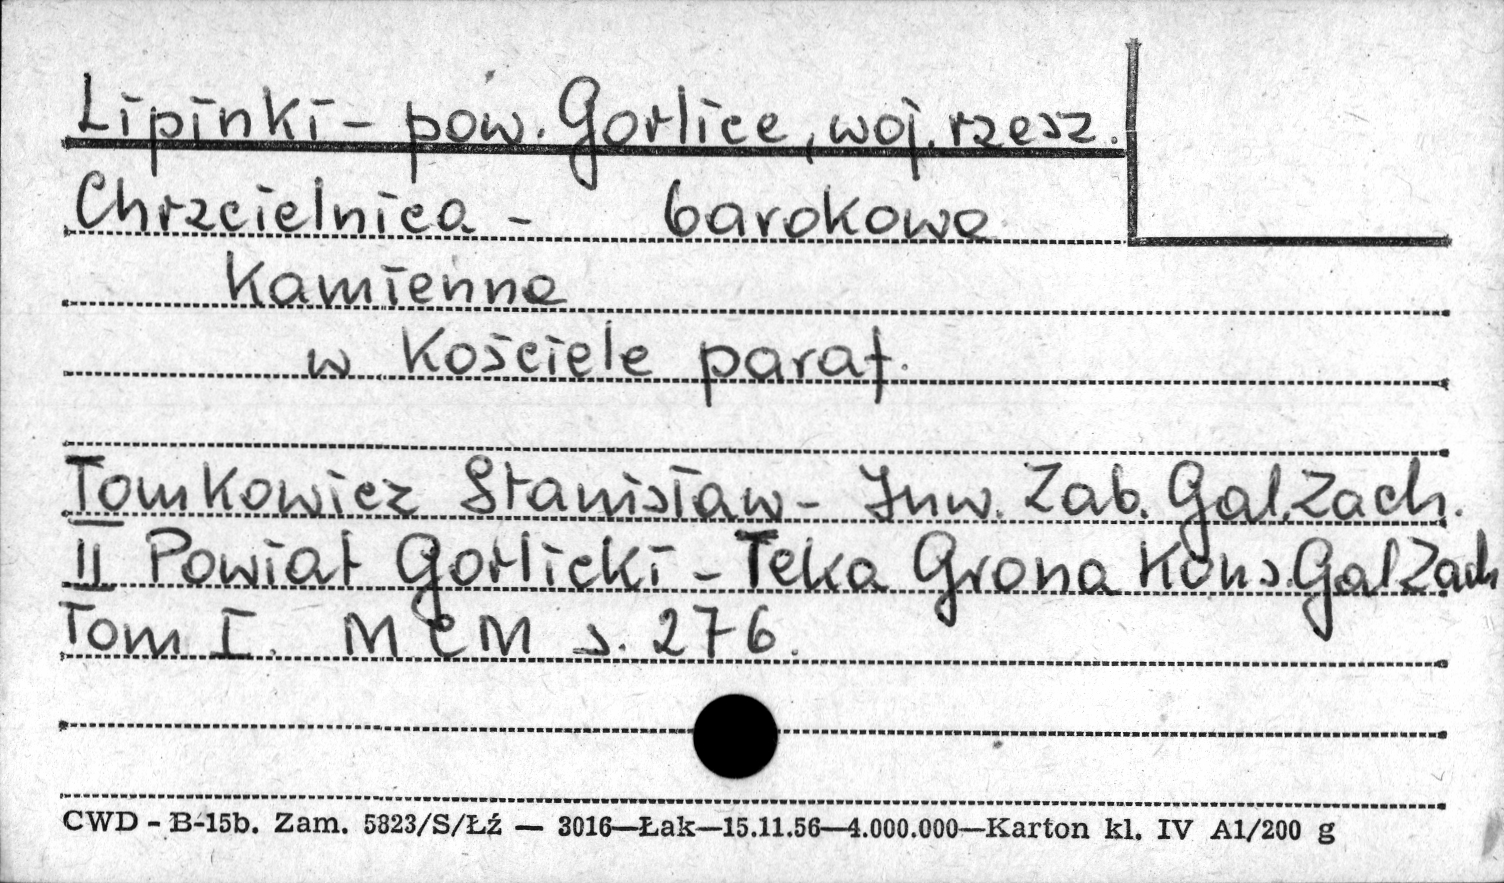 Lipinki - pow. Gorlice, woj. rzesz.
Chrzcielnica - barokowa
Kamienna
w Kościele paraf.
Tomkowicz Stanisław - Inw. Zab. Gal. Zach.
II Powiat Gorlicki - Teka Grona Kons. Gal Zach
Tom I. MCM s. 276.
CWD - B-15b. Zam. 5823/S/Łź — 3016—Łak—15.11.56—4.000.000—Karton kl. IV A1/200 g